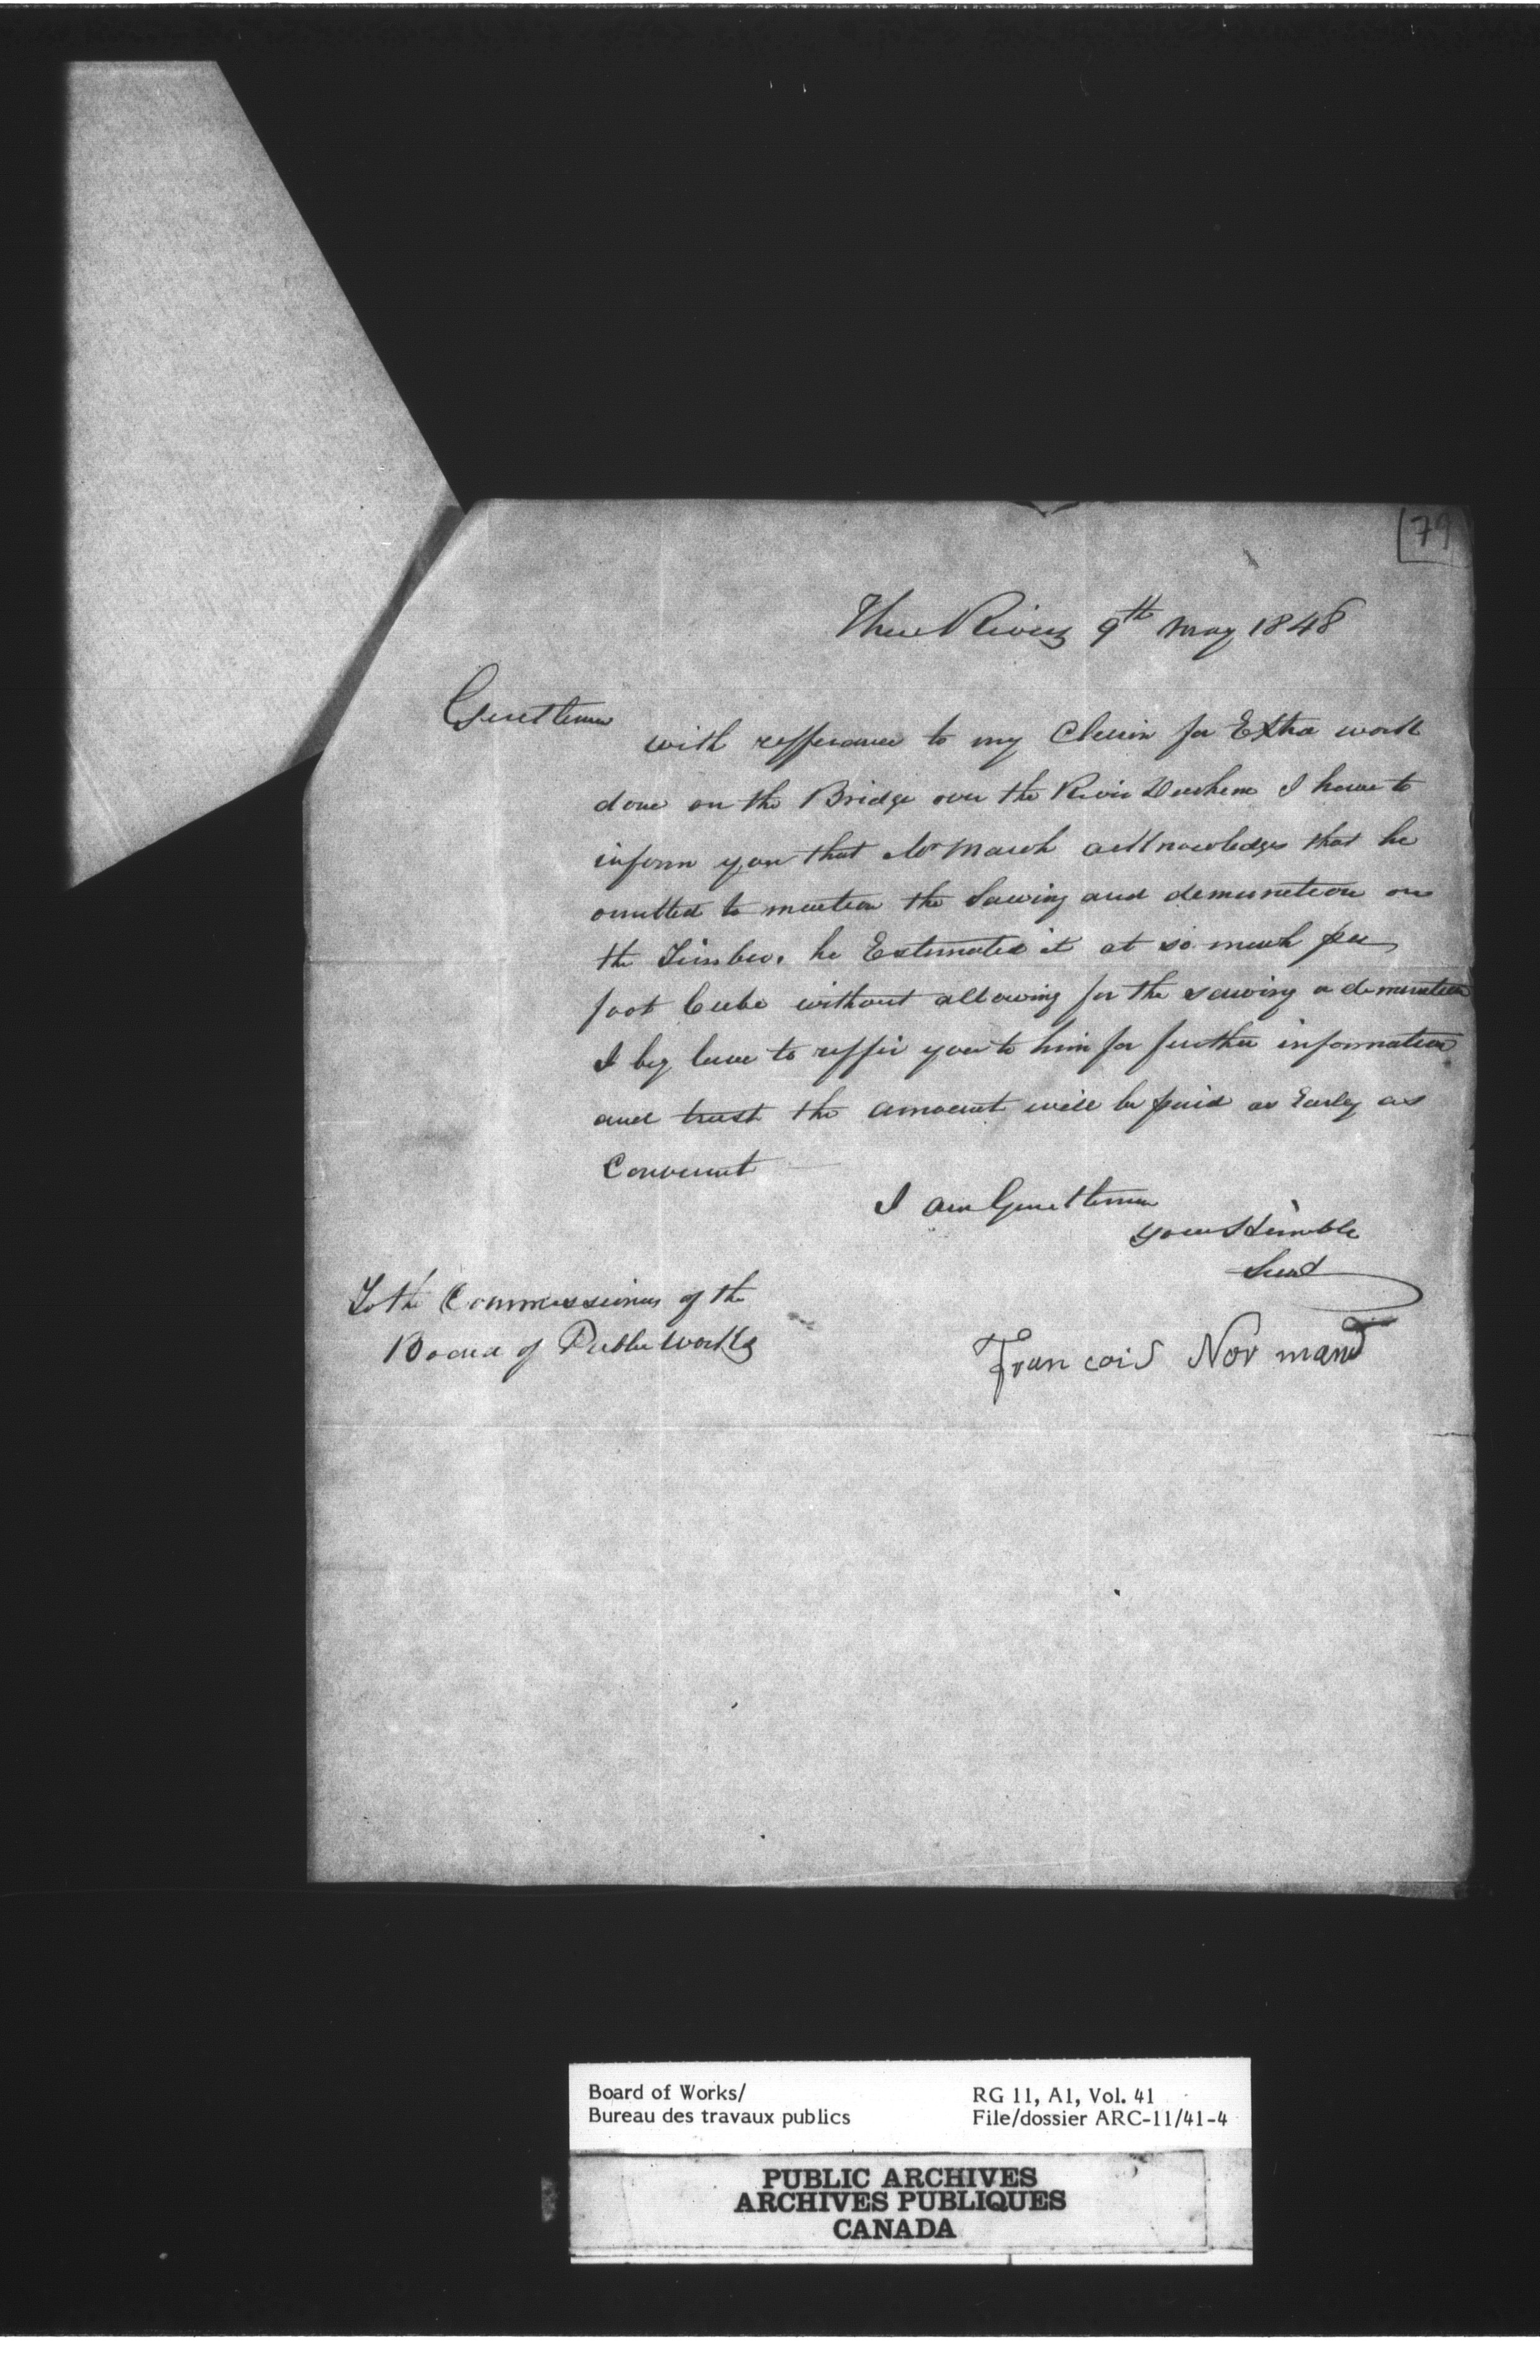 79
Three Rivers 9th May 1848
Gentlemen
with refferance to my Claim for Extra work
done on the Bridge over the River Duchene I have to
inform you that Mr Marsh acknowledges that he
omitted to mention the Sawing and demunetion on
the Timber. he Estimated it at so much per
foot Cube without allowing for the sawing a demunetion
I beg leave to reffer you to him for further information
and trust the amount will be paid as Early as
Convenient
I am Gentlemen
your Humble
Servt
To the Commissioners of the
Board of Public Works
Francois Normand
Board of Works/
Bureau des travaux publics
RG 11, A1, Vol. 41
File/dossier ARC-11/41-4
PUBLIC ARCHIVES
ARCHIVES PUBLIQUES
CANADA